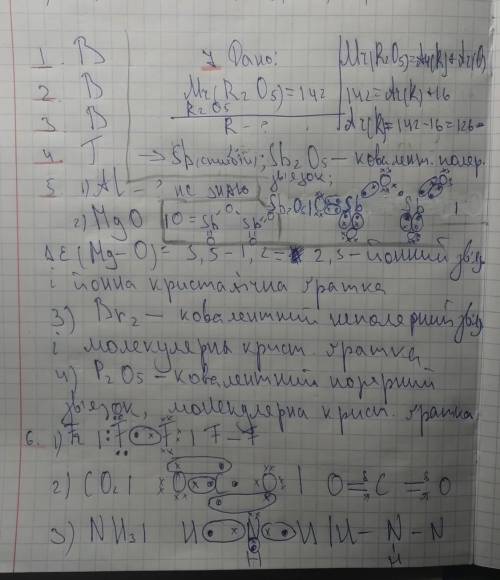 1. В
2. В
3. В
4. Г
7 Дано:
Mr(R₂O₅)=142
R₂O₅
R - ?
Mr(R₂O₅)=Ar(R)+Ar(O)
142=Ar(R)+16
Ar(R)=142-16=126
→ Sb; Sb₂O₅ – ковалент. поляр.
звʼязок;
5 1) Al – ? не знаю
2) MgO
ΔE (Mg–O) = 3,5 – 1,2 = 2,3 – йонний звʼяз
і йонна кристалічна гратка
3) Br₂ – ковалентний неполярний звʼяз
і молекулярна крист. гратка
4) P₂O₅ – ковалентний полярний
звʼязок, молекулярна крист. гратка
6. 1) F₂ | F F | F–F
2) CO₂ | O C O | O=C=O
3) NH₃ | H N H | H–N–N
H H